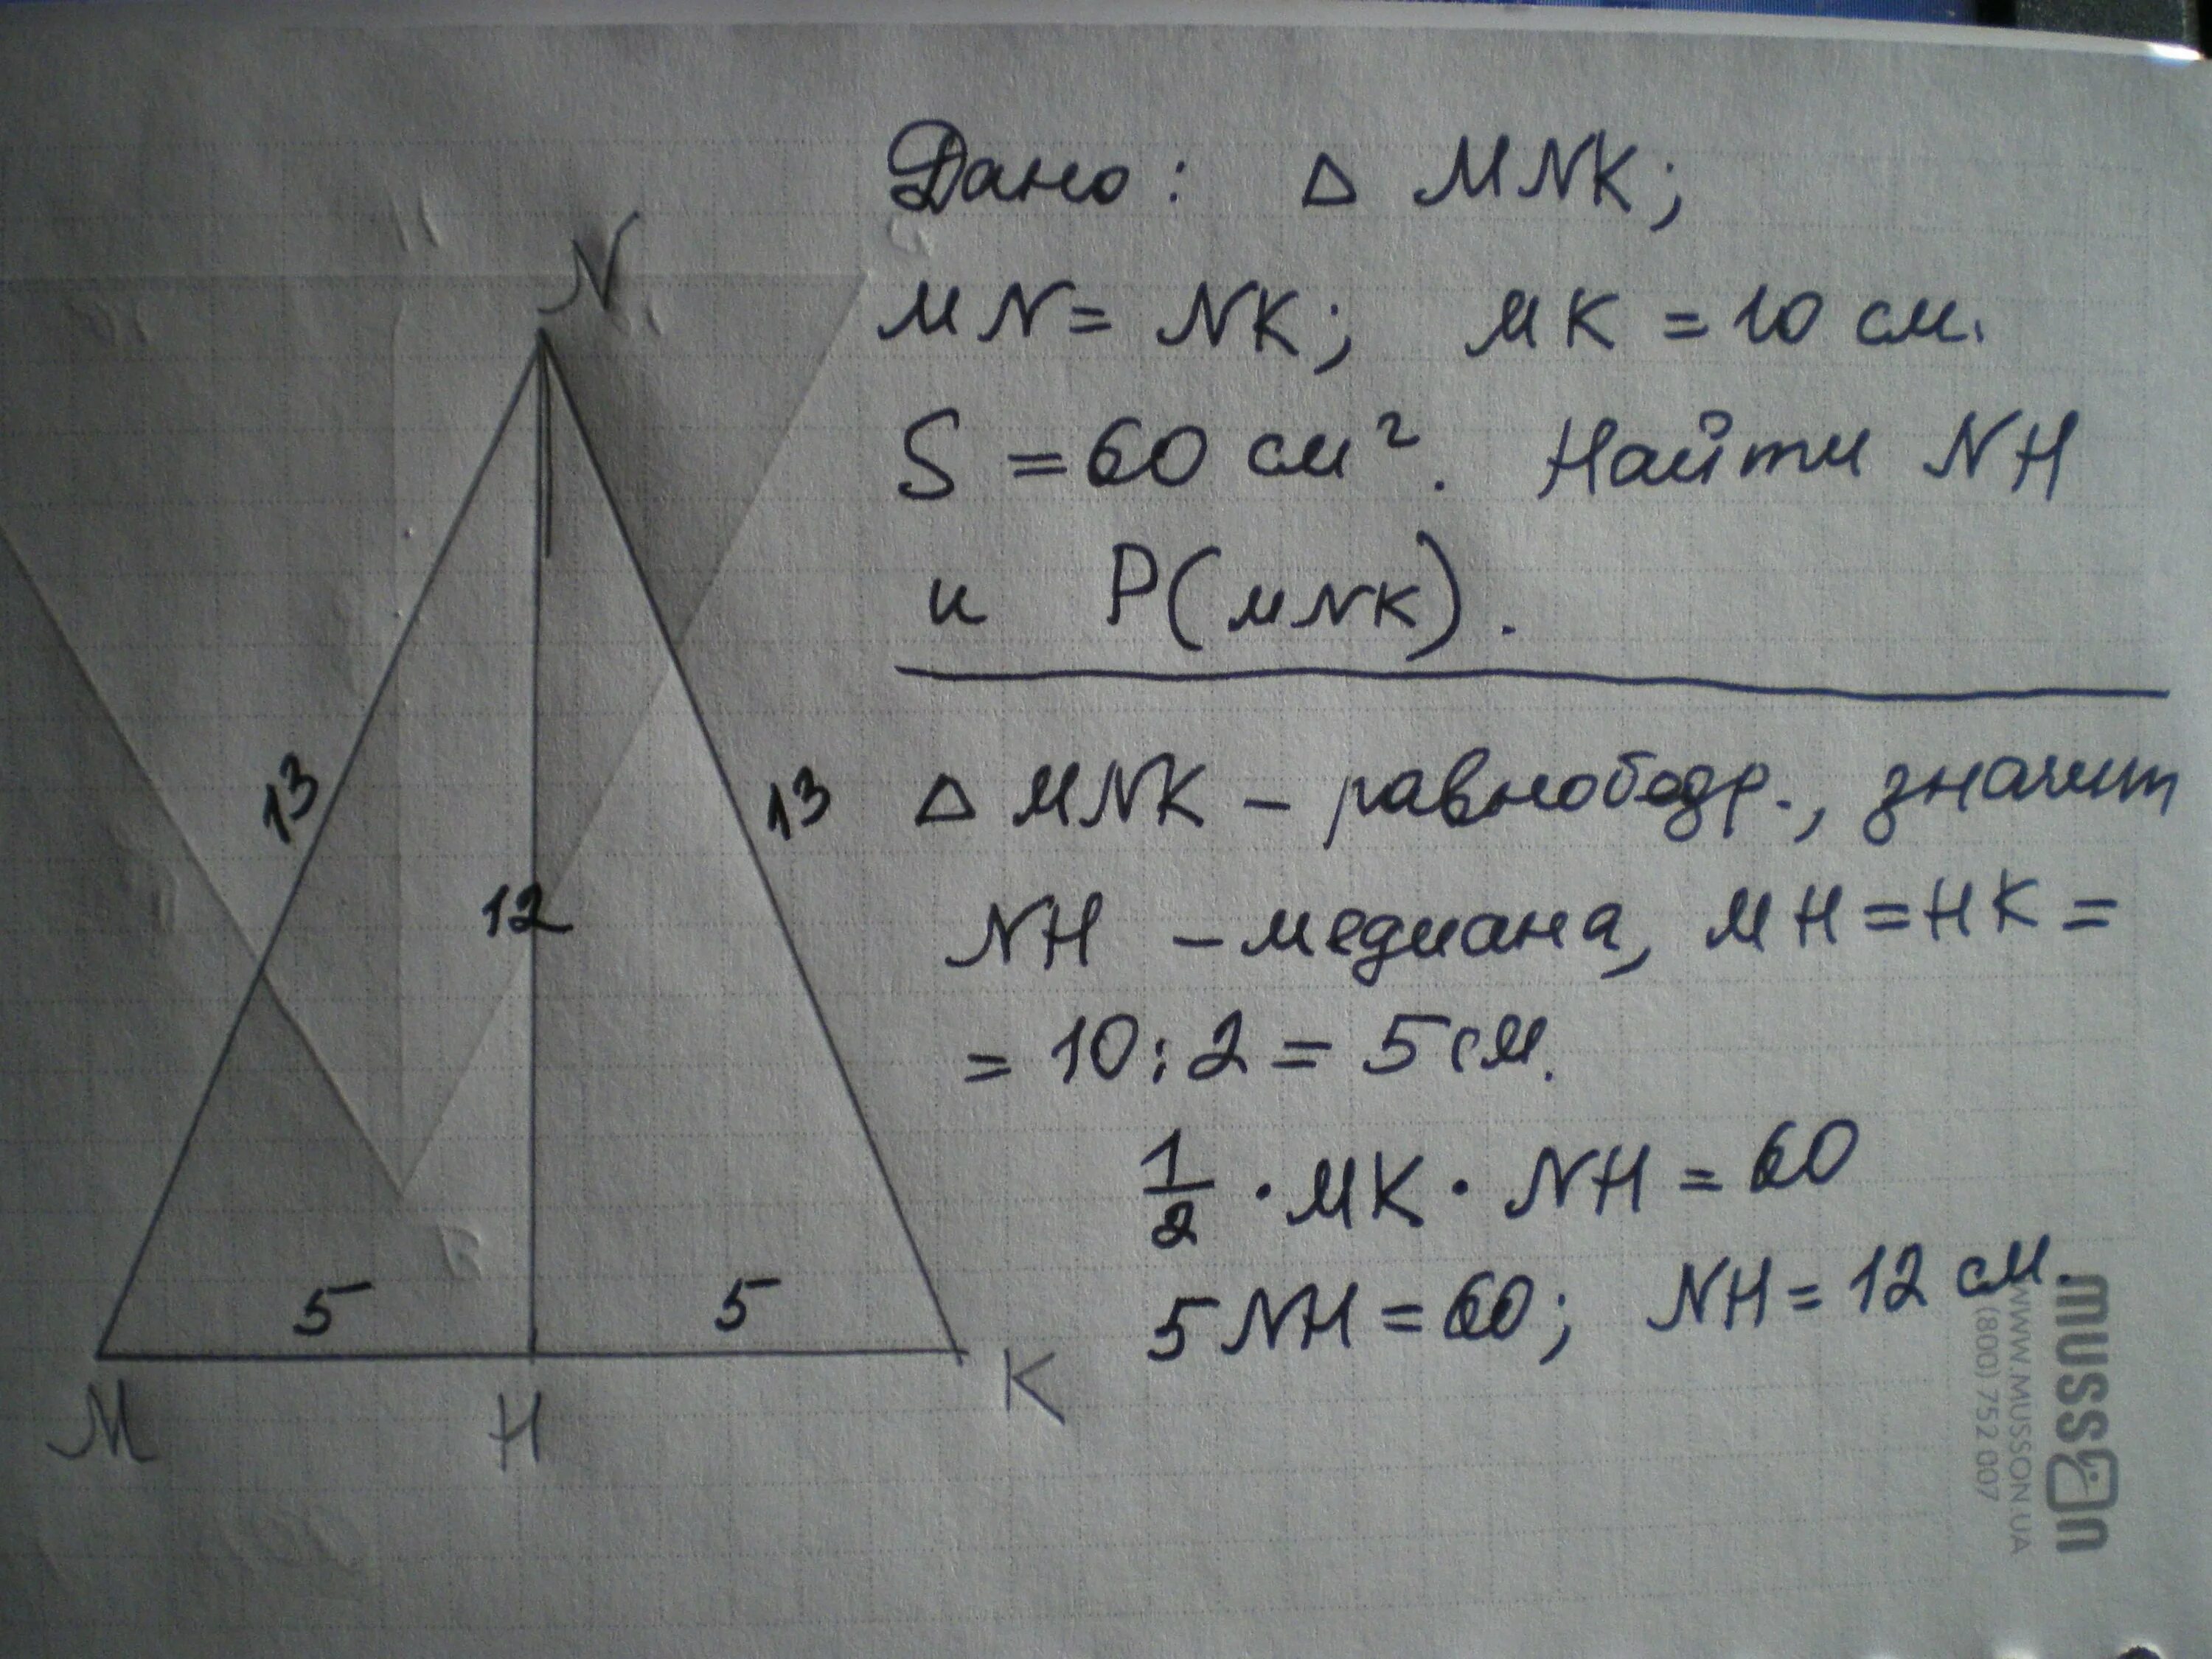 Дано: △ MNK;
MN = NK; MK = 10 см.
S = 60 см². Найти NH
и P(MNK).
△ MNK – равнобедр., значит
NH – медиана, MH = HK =
= 10 : 2 = 5 см.
1/2 · MK · NH = 60
5 NH = 60; NH = 12 см.
N
13
13
12
5
5
M
H
K
musson
WWW.MUSSON.UA
(800) 752 007